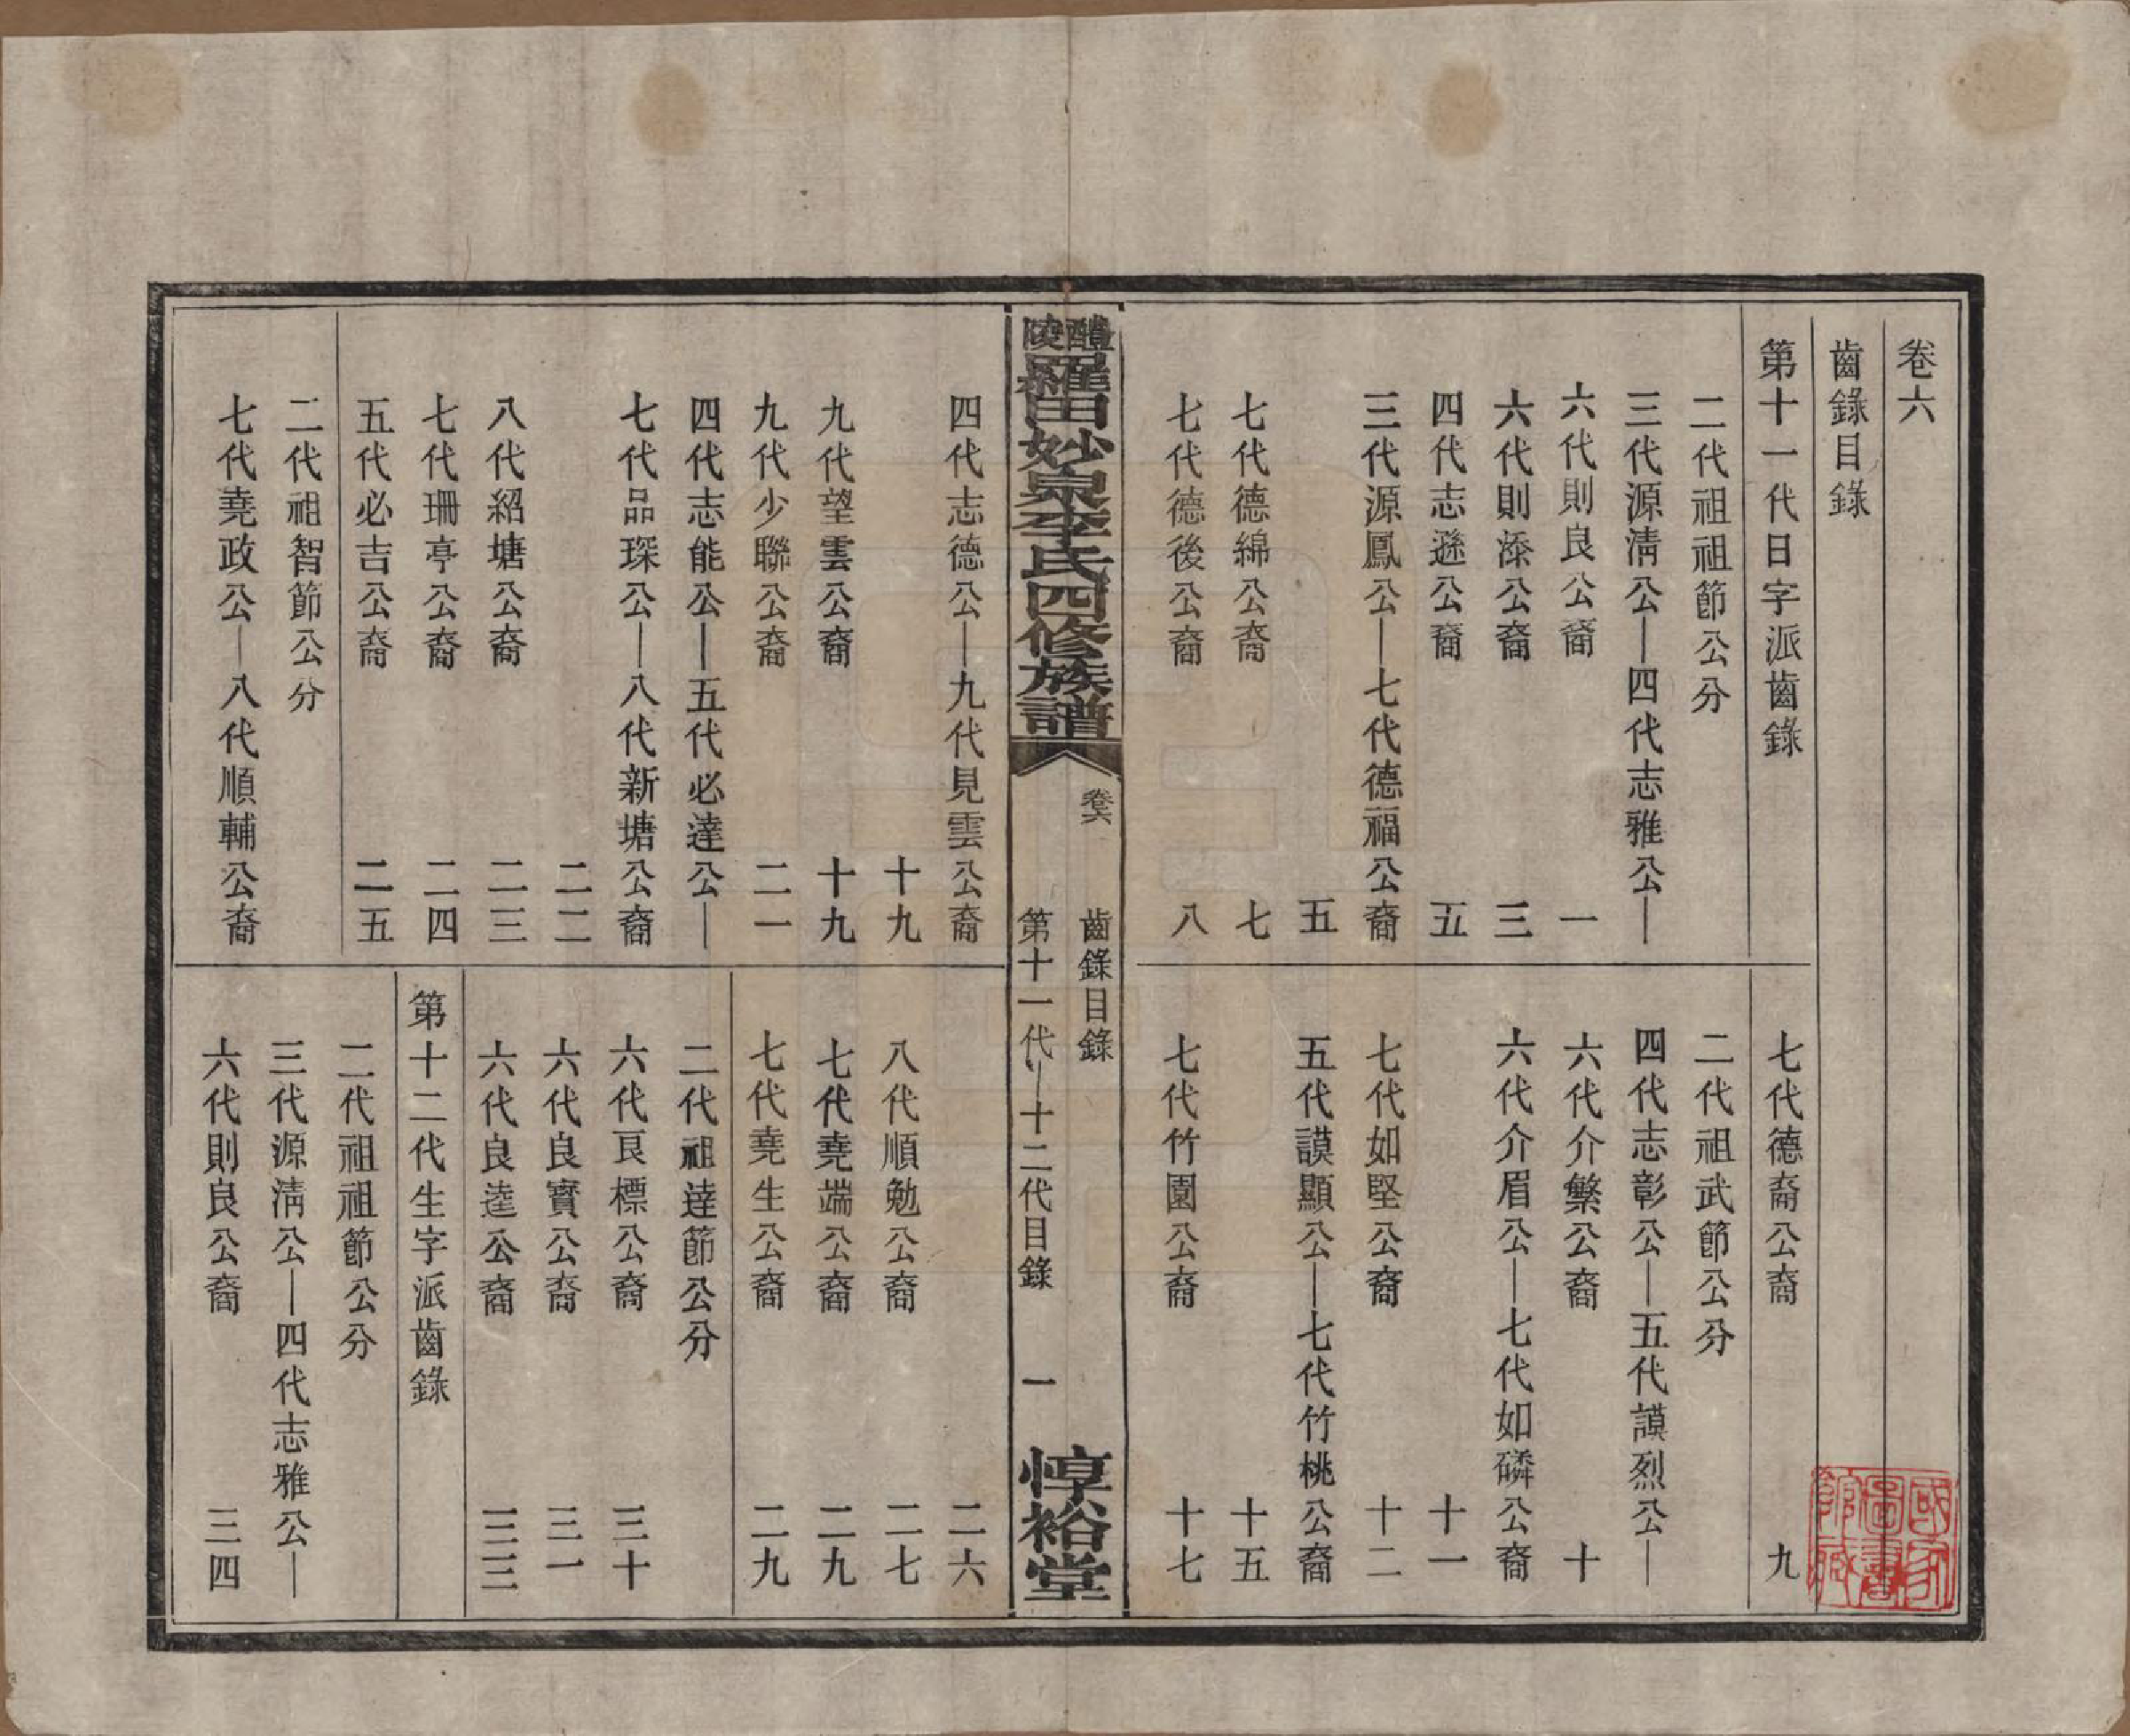 卷六
齒錄目錄
第十一代日字派齒錄
二代祖祖節公分
三代源淸公—四代志雅公—
六代則良公裔 一
六代則漆公裔 三
四代志遜公裔 五
三代源鳳公—七代德福公裔
五
七代德綿公裔 七
七代德後公裔 八
七代德裔公裔 九
二代祖武節公分
四代志彰公—五代謨烈公—
六代介繁公裔 十
六代介眉公—七代如磷公裔
十一
七代如堅公裔 十二
五代謨顯公—七代竹桃公裔
十五
七代竹園公裔 十七
醴陵羅田妙泉李氏四修族譜
卷六 齒錄目錄
第十一代—十二代目錄 一
惇裕堂
四代志德公—九代見雲公裔
十九
九代望雲公裔 十九
九代少聯公裔 二一
四代志能公—五代必達公—
七代品琛公—八代新塘公裔
二二
八代紹塘公裔 二三
七代珊亭公裔 二四
五代必吉公裔 二五
二代祖智節公分
七代堯政公—八代順輔公裔
二六
八代順勉公裔 二七
七代堯端公裔 二九
七代堯生公裔 二九
二代祖達節公分
六代良標公裔 三十
六代良實公裔 三一
六代良逵公裔 三三
第十二代生字派齒錄
二代祖祖節公分
三代源淸公—四代志雅公—
六代則良公裔 三四
國家圖書館藏